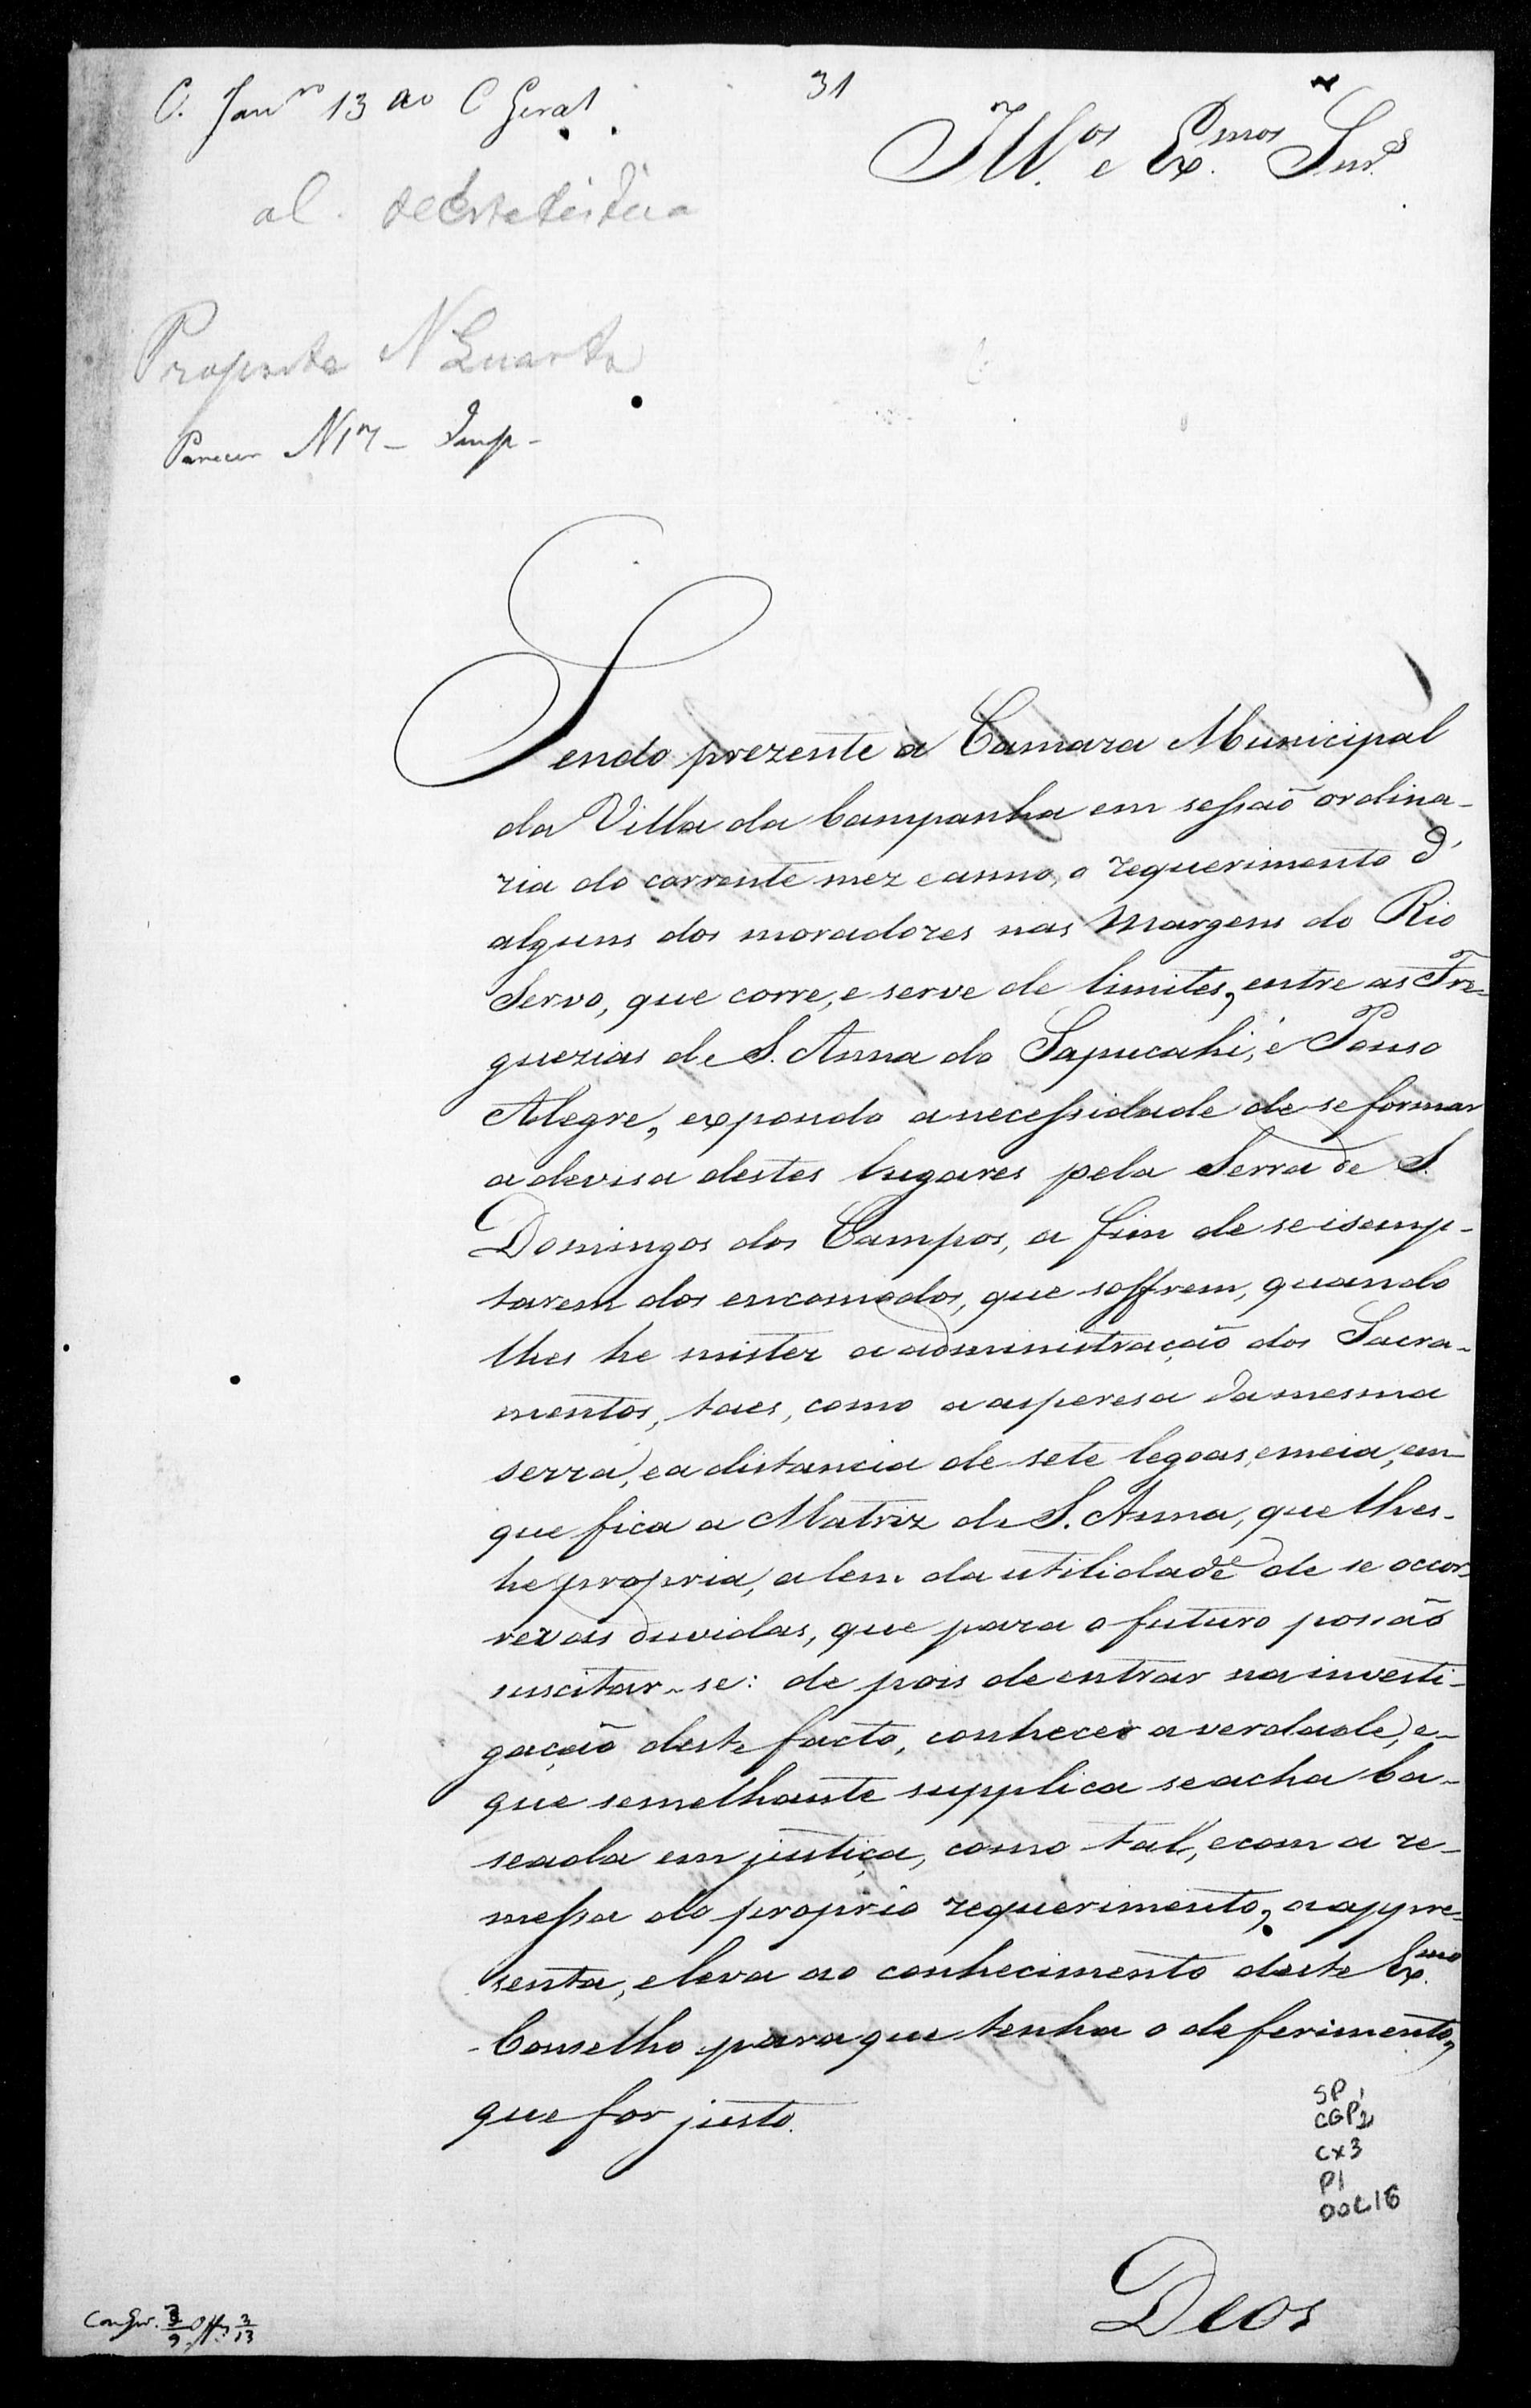 31
C. Janro 13 ao C Geral
Illos e Exmos Snrs
al. de Estatistica
Proposta N Quarta
Parecer N 17 - Imp -
Sendo prezente a Camara Municipal
da Villa da Campanha em sessaõ ordina-
ria do corrente mez e anno, o requerimento d'
alguns dos moradores nas Margens do Rio
Servo, que corre, e serve de limites, entre as Fre-
guezias de S. Anna do Sapucahi, e Pouso
Alegre, expondo a necessidade de se formar
a devisa destes lugares pela Serra de S.
Domingos dos Campos, a fim de se isemp-
tarem dos encomodos, que soffrem, quando
lhes he mister a administração dos Sacra-
mentos, taes, como a asperesa da mesma
serra, e a distancia de sete legoas, e meia, em
que fica a Matriz de S. Anna, que lhes-
he propria, alem da utilidade de se occor-
rer as duvidas, que para o futuro possaõ
suscitar-se: de pois de entrar na investi-
gaçaõ deste facto, conhecer a verdade, e-
que semelhante supplica se acha ba-
seada em justiça, como tal, e com a re-
messa do proprio requerimento, a appre-
senta, e leva ao conhecimento deste Exmo
Conselho para que tenha o deferimento,
que for justo.
SP 1
CGP 2
CX3
P1
DOC 16
Deos
Con Ger. 3/9 Off. 3/13